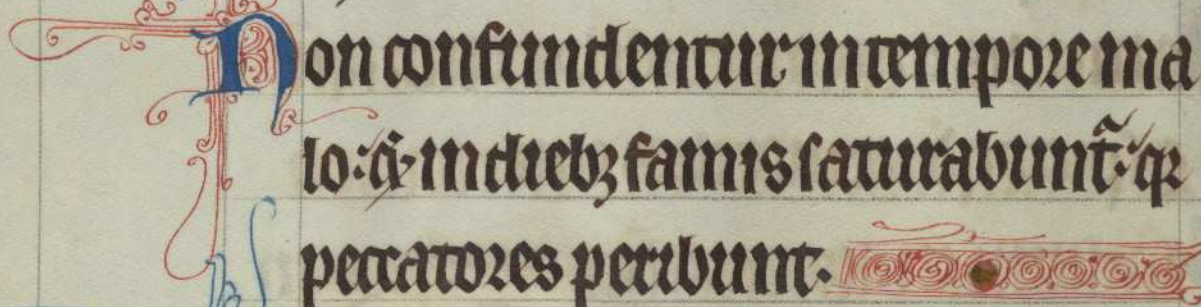 Non confundentur in tempore ma
lo: & in diebꝫ famis saturabunt᷑: qꝛ
peccatores peribunt.